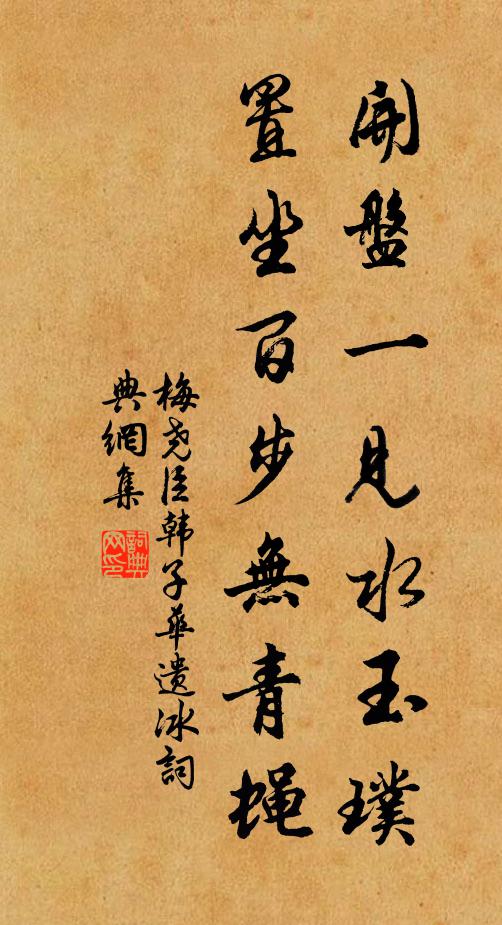 開盤一見水玉璞
置坐百步無青蝇
梅尧臣韩子華遗冰詞
典網集
詞典网印